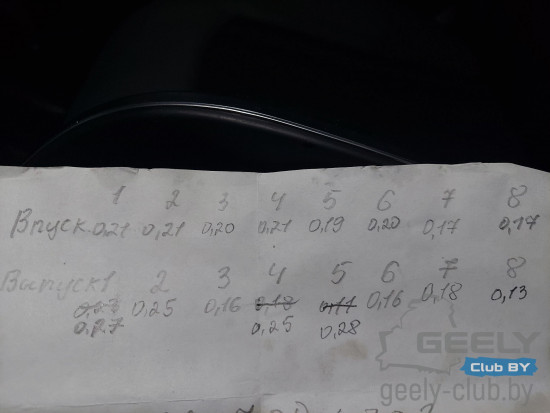 1 2 3 4 5 6 7 8
Впуск 0,21 0,21 0,20 0,21 0,19 0,20 0,17 0,17
Выпуск 1 2 3 4 5 6 7 8
0,25 0,16 0,18 0,11 0,16 0,18 0,13
0,27 0,25 0,28
GEELY
Club BY
geely-club.by